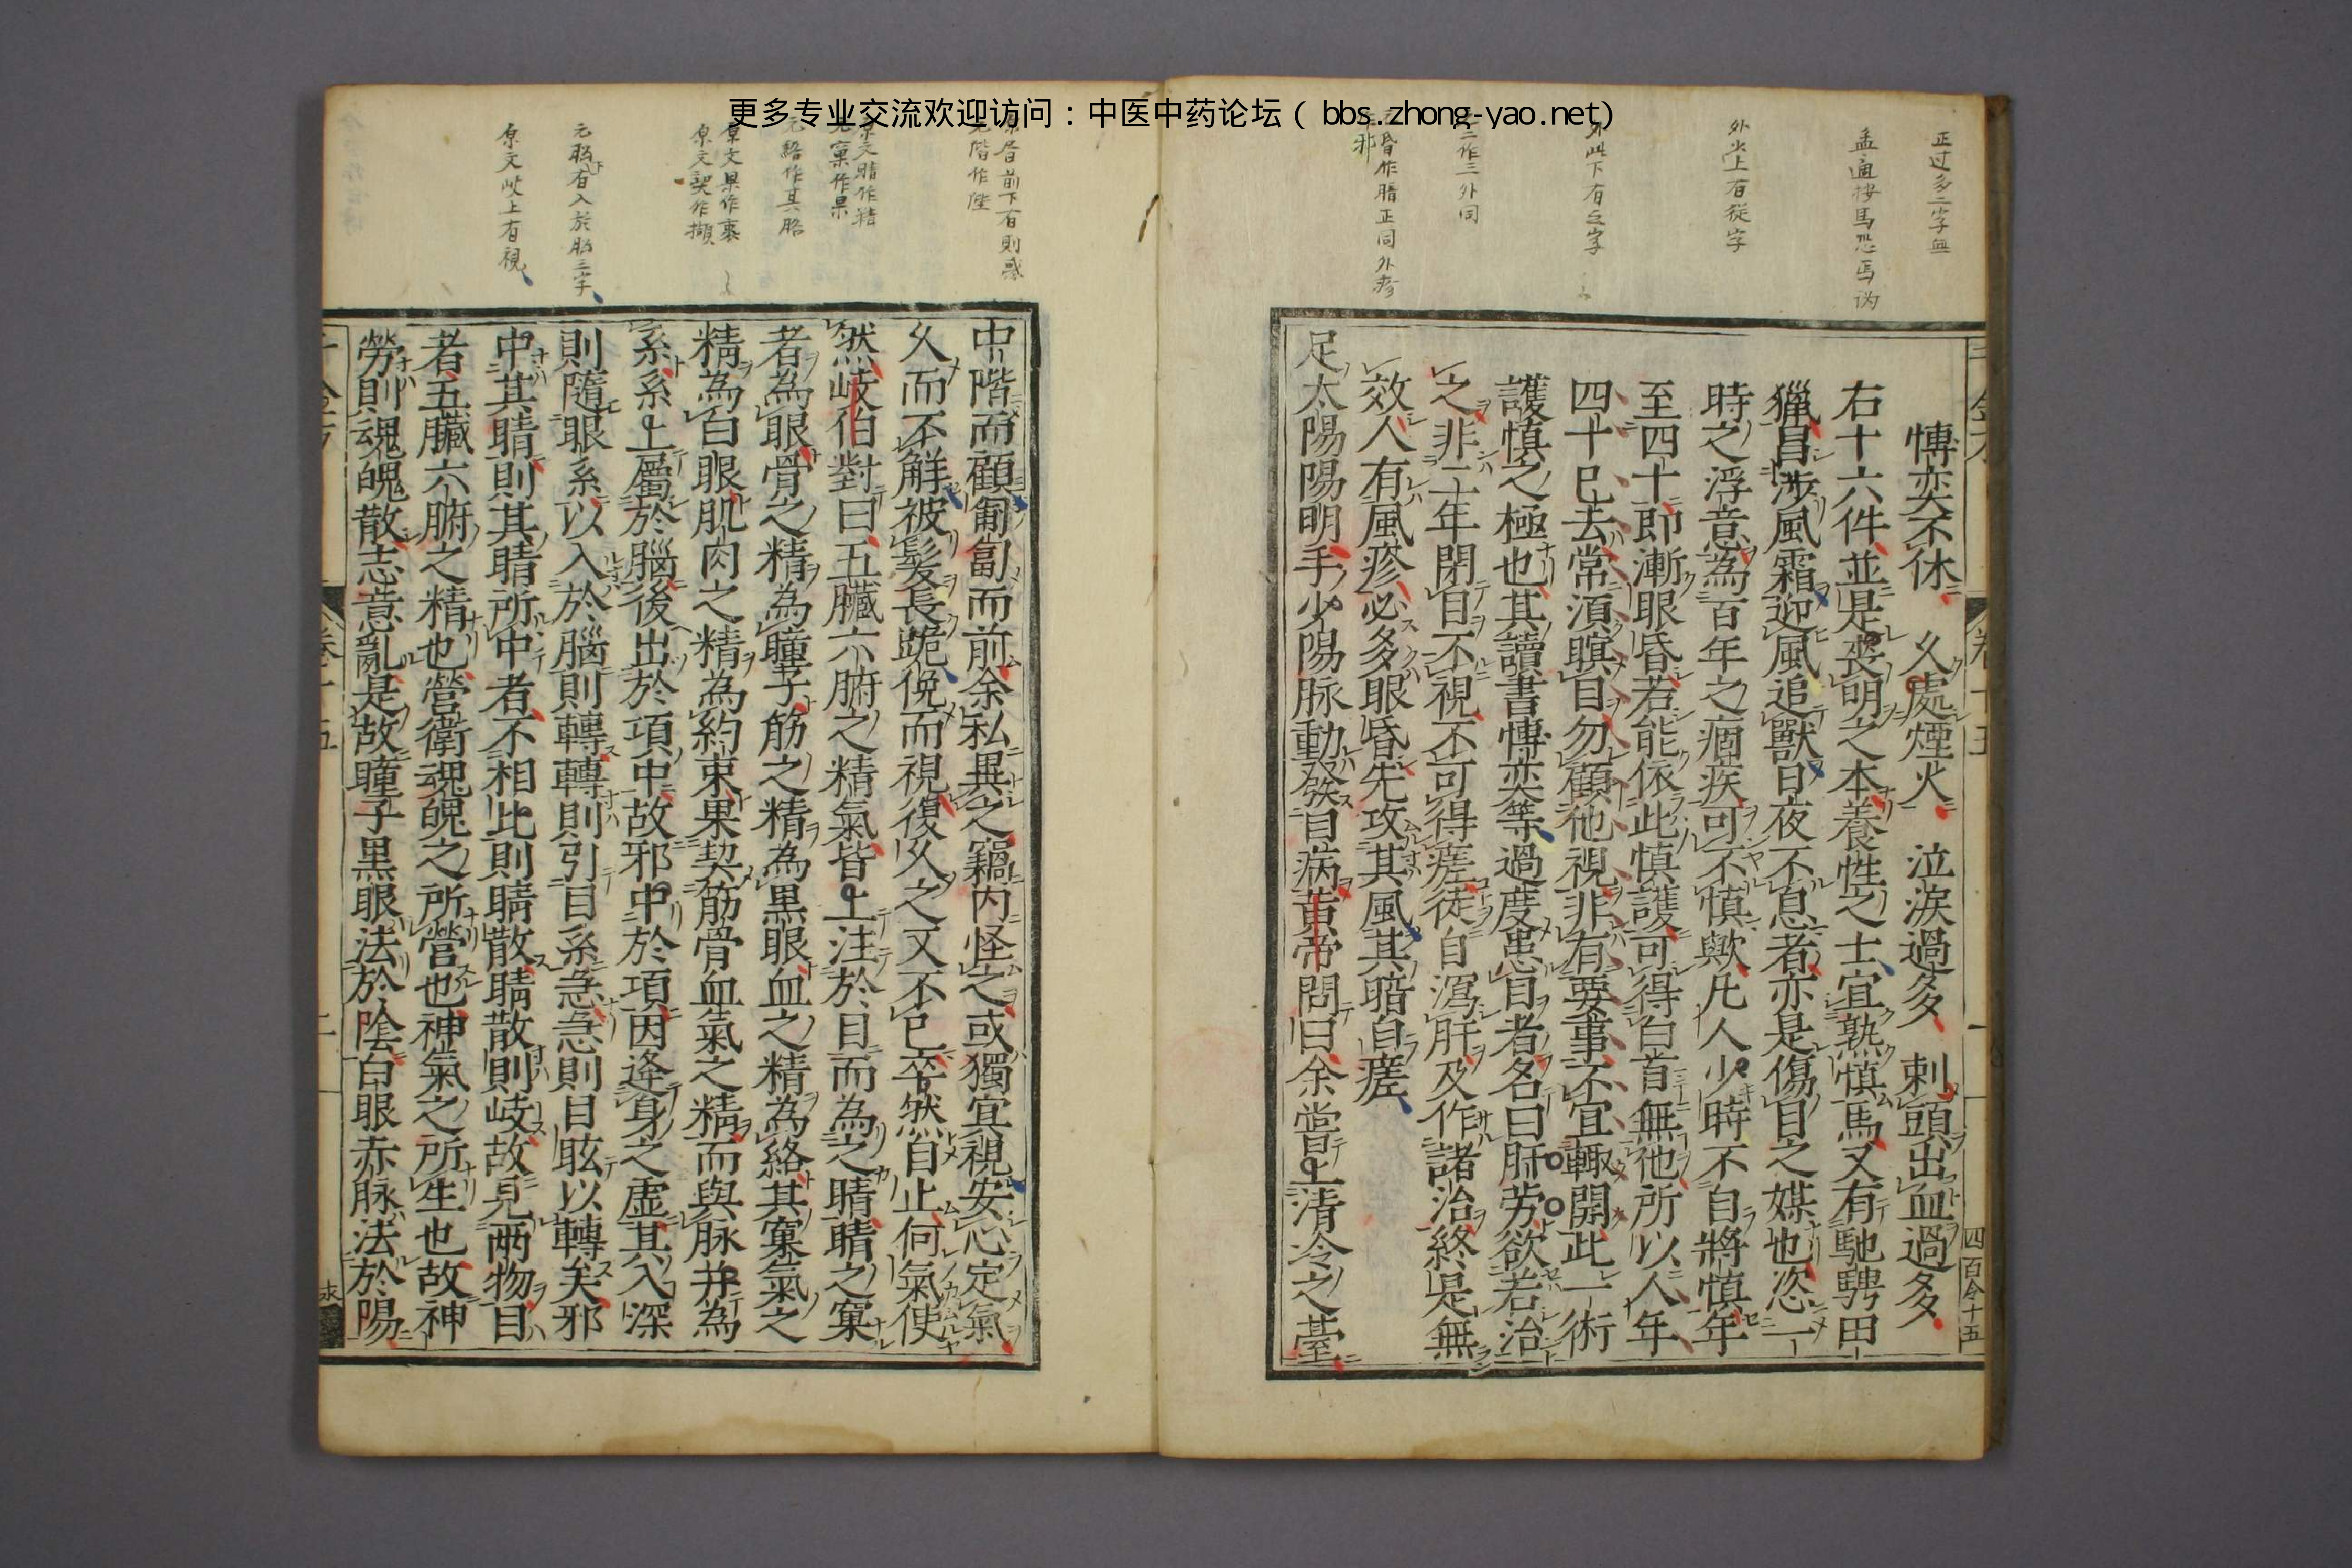 更多专业交流欢迎访问：中医中药论坛（ bbs.zhong-yao.net）
正过多二字無
孟適按馬恐焉讹
外火上有從字
外此下有之字
二作三外同
昏作暗正同外疹
邪
四百令十五
博奕不休 久處煙火 泣淚過多 刺頭出血過多
右十六件並是喪明之本養性之士宜熟慎馬又有馳騁田
獵冒渉風霜迎風追獸日夜不息者亦是傷目之媒也恣一
時之浮意為百年之痼疾可不慎歟凡人少時不自將慎年
至四十即漸眼昏若能依此慎護可得白首無他所以人年
四十已去常須瞑目勿顧他視非有要事不宜輙開此一術
護慎之極也其讀書博奕等過度患目者名曰肝勞欲若治
之非二年閉目不視不可得瘥徒自瀉肝及作諸治終是無
效人有風疹必多眼昏先攻其風其暗自瘥
足太陽陽明手少陽脉動發目病黄帝問曰余嘗上清冷之臺
原唇前下有則惑
元階作陛
原文睛作精
元窠作果
元絡作其胳
原文果作裹
原文契作擷
元腦有入於腦三字
原文岐上有視
中階而顧匍匐而前余私異之竊内怪之或獨宜視安心定氣
久而不解被髮長跪俛而視復久之又不已卒然自止何氣使
然岐伯對曰五臟六腑之精氣皆上注於目而為之睛睛之窠
者為眼骨之精為瞳子筋之精為黒眼血之精為絡其窠氣之
精為白眼肌肉之精為約束果契筋骨血氣之精而與脉并為
系系上屬於腦後出於項中故邪中於項因逢身之虚其入深
則隨眼系以入於腦則轉轉則引目系急急則目眩以轉矣邪
中其睛則其睛所中者不相比則睛散睛散則岐故見两物目
者五臟六腑之精也營衛魂魄之所營也神氣之所生也故神
勞則魂魄散志意亂是故瞳子黒眼法於陰白眼赤脉法於陽